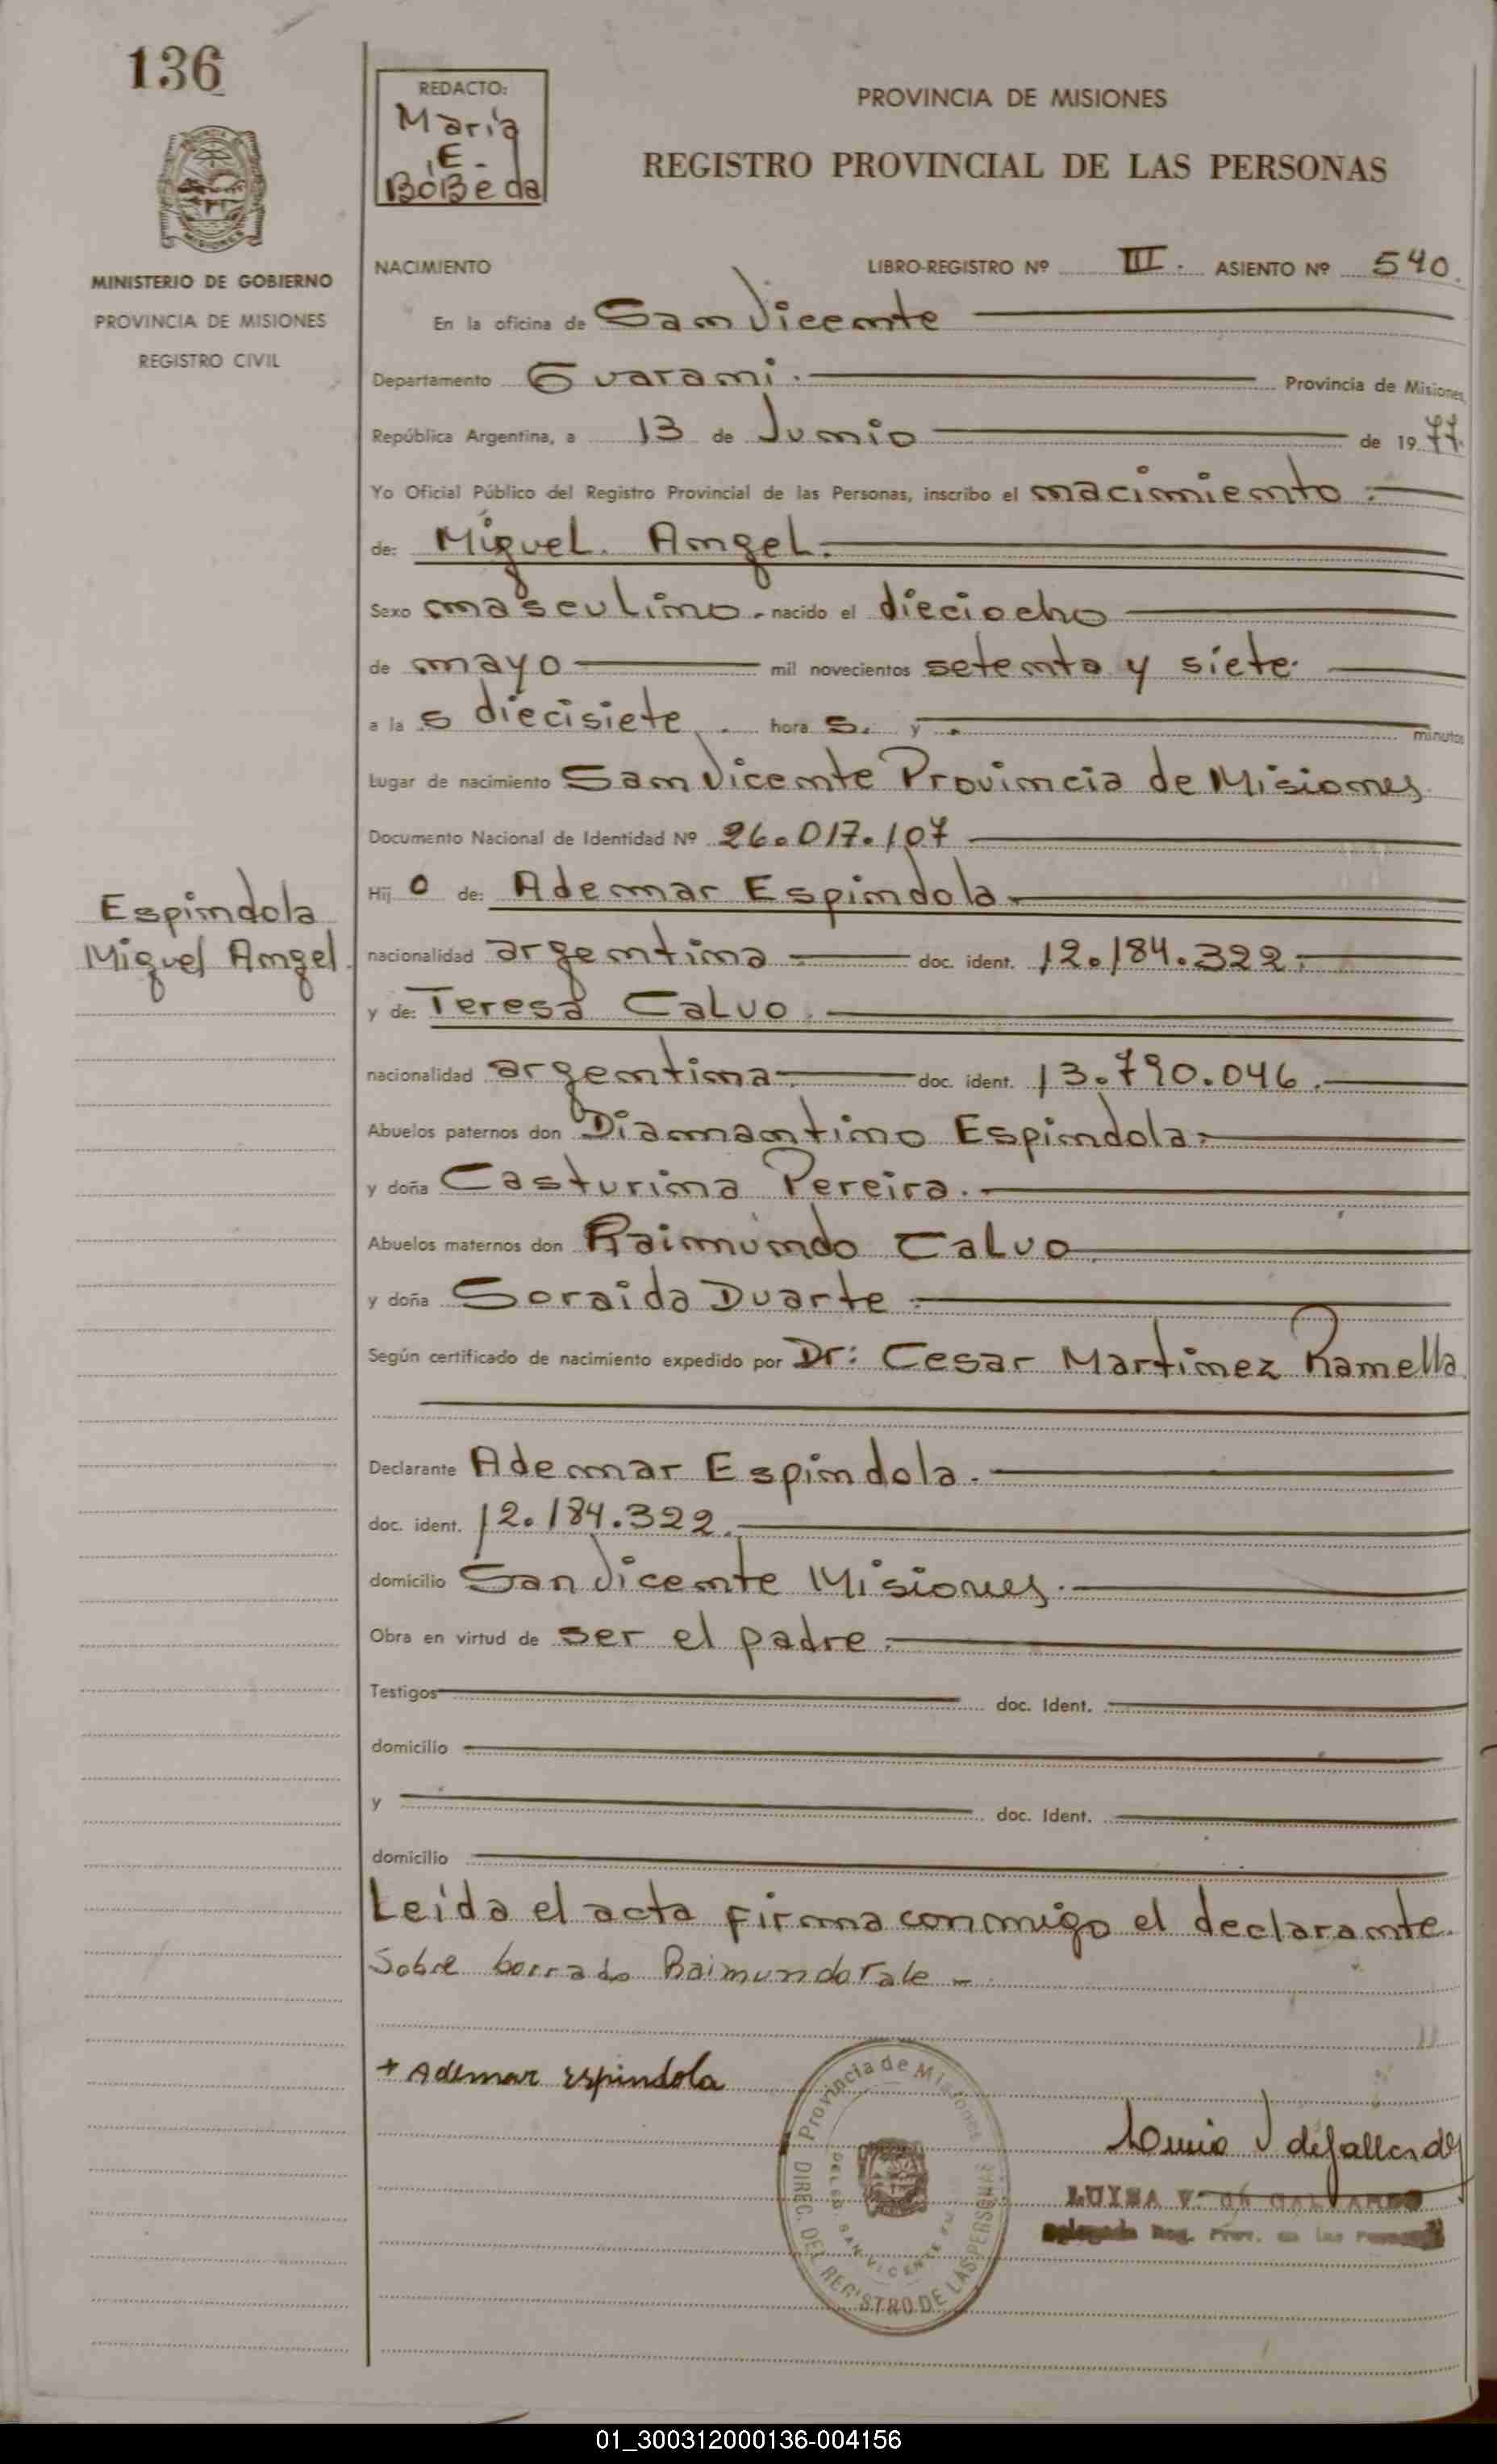 136
REDACTO:
Maria
E.
BoBeda
PROVINCIA DE MISIONES
REGISTRO PROVINCIAL DE LAS PERSONAS
MINISTERIO DE GOBIERNO
PROVINCIA DE MISIONES
REGISTRO CIVIL
NACIMIENTO LIBRO-REGISTRO Nº III. ASIENTO Nº 540.
En la oficina de San Vicente
Departamento Guarani. Provincia de Misiones,
República Argentina, a 13 de Junio de 1977.
Yo Oficial Público del Registro Provincial de las Personas, inscribo el nacimiento.
de: Miguel. Angel.
Sexo masculino. nacido el dieciocho
de mayo mil novecientos setenta y siete.
a las diecisiete. horas. y . minutos
Lugar de nacimiento San Vicente Provincia de Misiones.
Documento Nacional de Identidad Nº 26.017.107
Hijo de: Ademar Espindola.
Espindola
Miguel Angel.
nacionalidad argentina doc. ident. 12.184.322.
y de: Teresa Calvo.
nacionalidad argentina doc. ident. 13.790.046.
Abuelos paternos don Diamantino Espindola.
y doña Casturina Pereira.
Abuelos maternos don Raimundo Calvo
y doña Soraida Duarte.
Según certificado de nacimiento expedido por Dr: Cesar Martinez Ramella
Declarante Ademar Espindola.
doc. ident. 12.184.322.
domicilio San Vicente Misiones.
Obra en virtud de ser el padre.
Testigos doc. Ident.
domicilio
y doc. Ident.
domicilio
Leida el acta firma conmigo el declarante.
Sobre borrado Raimundo Vale -
+ Ademar Espindola
Provincia de Misiones
DIREC. DEL REGISTRO DE LAS PERSONAS
SAN VICENTE
LUISA V. DE GALLARDO
Delegada Reg. Prov. de las Personas
01_300312000136-004156